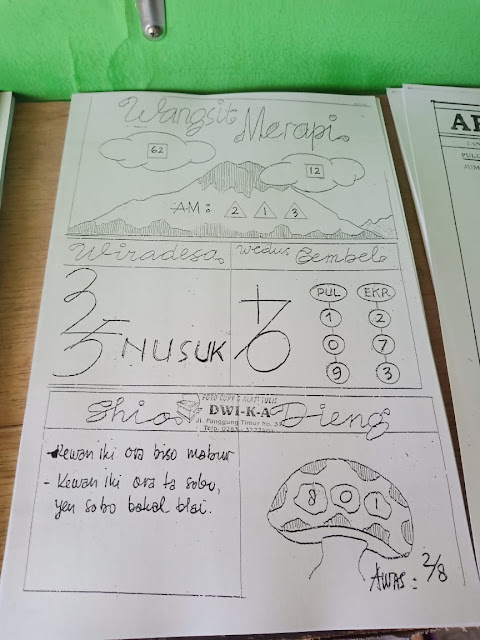 Wangsit Merapi
62
12
AM: 2 1 3
Wiradesa
Wedus Gembel
3
5 NUSUK
PUL EKR
1 2
0 7
9 3
FOTO COPY & ALAT TULIS
DWI-K-A
Jl. Panggung Timur No. 3
Shio Dieng
- Kewan iki ora biso mabur
- Kewan iki ora ta sobo,
yen sobo bakal blai.
8 0 1
AWAS : 2/8
AR
PULU